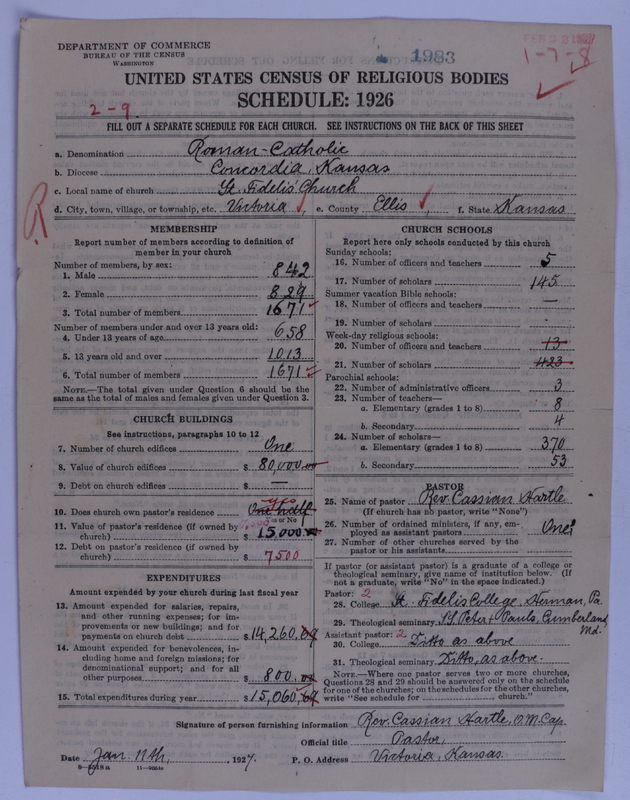 DEPARTMENT OF COMMERCE
BUREAU OF THE CENSUS
WASHINGTON
1983
1-7-8
UNITED STATES CENSUS OF RELIGIOUS BODIES
SCHEDULE: 1926
2-9
FILL OUT A SEPARATE SCHEDULE FOR EACH CHURCH. SEE INSTRUCTIONS ON THE BACK OF THIS SHEET
a. Denomination Roman-Catholic
b. Diocese Concordia, Kansas
c. Local name of church St. Fidelis Church
d. City, town, village, or township, etc. Victoria, e. County Ellis, f. State Kansas
R
MEMBERSHIP
Report number of members according to definition of
member in your church
Number of members, by sex:
1. Male 842
2. Female 829
3. Total number of members 1671
Number of members under and over 13 years old:
4. Under 13 years of age 658
5. 13 years old and over 1013
6. Total number of members 1671
NOTE.—The total given under Question 6 should be
same as the total of males and females given under Question 3.
CHURCH BUILDINGS
See instructions, paragraphs 10 to 12
7. Number of church edifices One
8. Value of church edifices $ 80,000.00
9. Debt on church edifices $ —
10. Does church own pastor's residence yes One half
Yes or No
11. Value of pastor's residence (if owned by
church) $ 15,000.00
12. Debt on pastor's residence (if owned by
church) $ 7500
EXPENDITURES
Amount expended by church during last fiscal year
13. Amount expended for salaries, repairs,
and other running expenses; for im-
provements or new buildings; and for
payments on church debt $ 14,260.69
14. Amount expended for benevolences, in-
cluding home and foreign missions; for
denominational support; and for all
other purposes $ 800.00
15. Total expenditures during year $ 15,060.69
CHURCH SCHOOLS
Report here only schools conducted by this church
Sunday schools:
16. Number of officers and teachers 5
17. Number of scholars 145
Summer vacation Bible schools:
18. Number of officers and teachers —
19. Number of scholars -
Week-day religious schools:
20. Number of officers and teachers 13
21. Number of scholars 423
Parochial schools:
22. Number of administrative officers 3
23. Number of teachers—
a. Elementary (grades 1 to 8) 8
b. Secondary 4
24. Number of scholars—
a. Elementary (grades 1 to 8) 370
b. Secondary 53
PASTOR
25. Name of pastor Rev. Cassian Hartle
(If church has no pastor, write "None")
26. Number of ordained ministers, if any, em-
ployed as assistant pastors One
27. Number of other churches served by the
pastor or his assistants
If pastor (or assistant pastor) is a graduate of a college or
theological seminary, give name of institution below. (If
not a graduate, write "No" in the space indicated.)
Pastor: 2
28. College St. Fidelis College, Herman, Pa.
29. Theological seminary SS. Peter & Pauls, Cumberland, Md.
Assistant pastor: 2
30. College Ditto as above
31. Theological seminary Ditto, as above.
NOTE.—Where one pastor serves two or more churches,
Questions 28 and 29 should be answered only on the schedule
for one of the churches; on the schedules for the other churches,
write "See schedule for church."
Signature of person furnishing information Rev. Cassian Hartle, O.M.Cap.
Official title Pastor,
Date Jan. 11th, 1927. P. O. Address Victoria, Kansas.